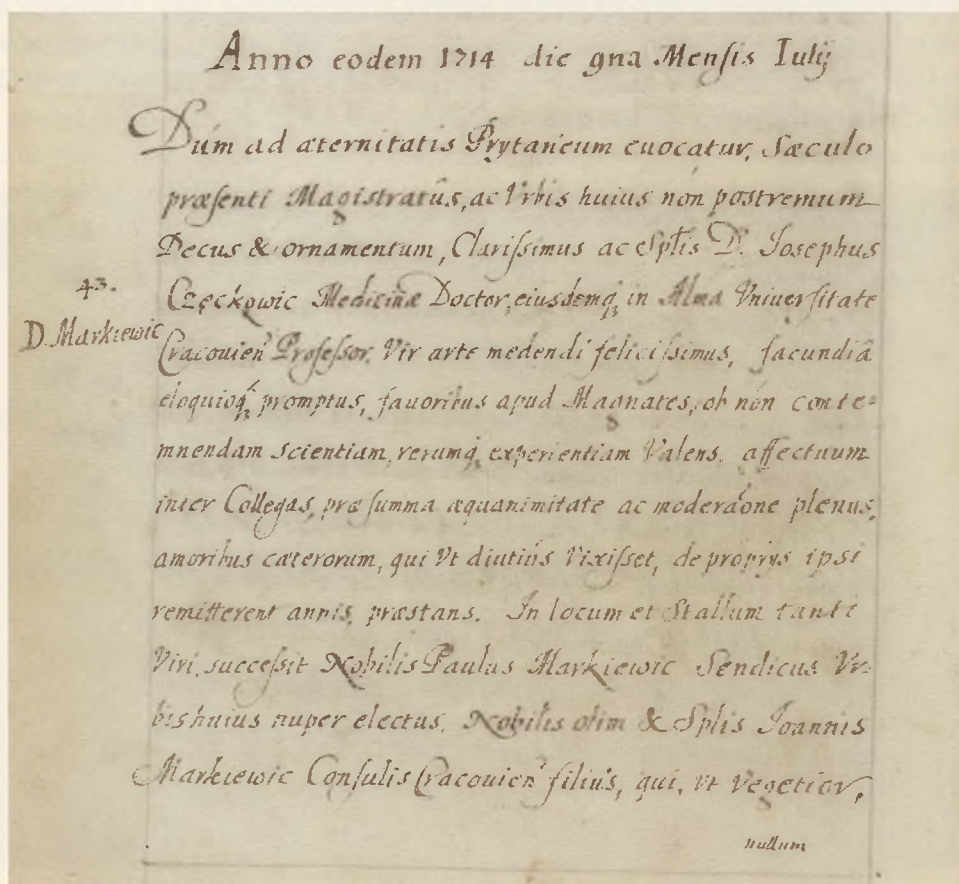 Anno eodem 1714 die 9na Mensis Iulij
Dum ad æternitatis Prytaneum euocatur, Sæculo
præsenti Magistratûs, ac Vrbis huius non postremum
Decus & ornamentum, Clarissimus ac Spłis D. Josephus
43.
Częckowic Medicinæ Doctor, eiusdemq́; in Alma Vniuersitate
D. Markiewic
Cracouien̄ Professor. Vir arte medendi felicissimus, facundiâ
eloquioq́; promptus, fauoribus apud Magnates, ob non conte=
mnendam scientiam, rerumq́; experientiam Valens, affectuum
inter Collegas, præ summa æquanimitate ac moderaône plenus,
amoribus cæterorum, qui Vt diutiùs Vixisset, de proprijs ipsi
remitterent annis, præstans. In locum et Stallum tanti
Viri, successit Nobilis Paulus Markiewic Sendicus Vr=
bis huius nuper electus, Nobilis olim & Spłis Joannis
Markiewic Consulis Cracouien̄ filius, qui, vt Vegetior,
nullum